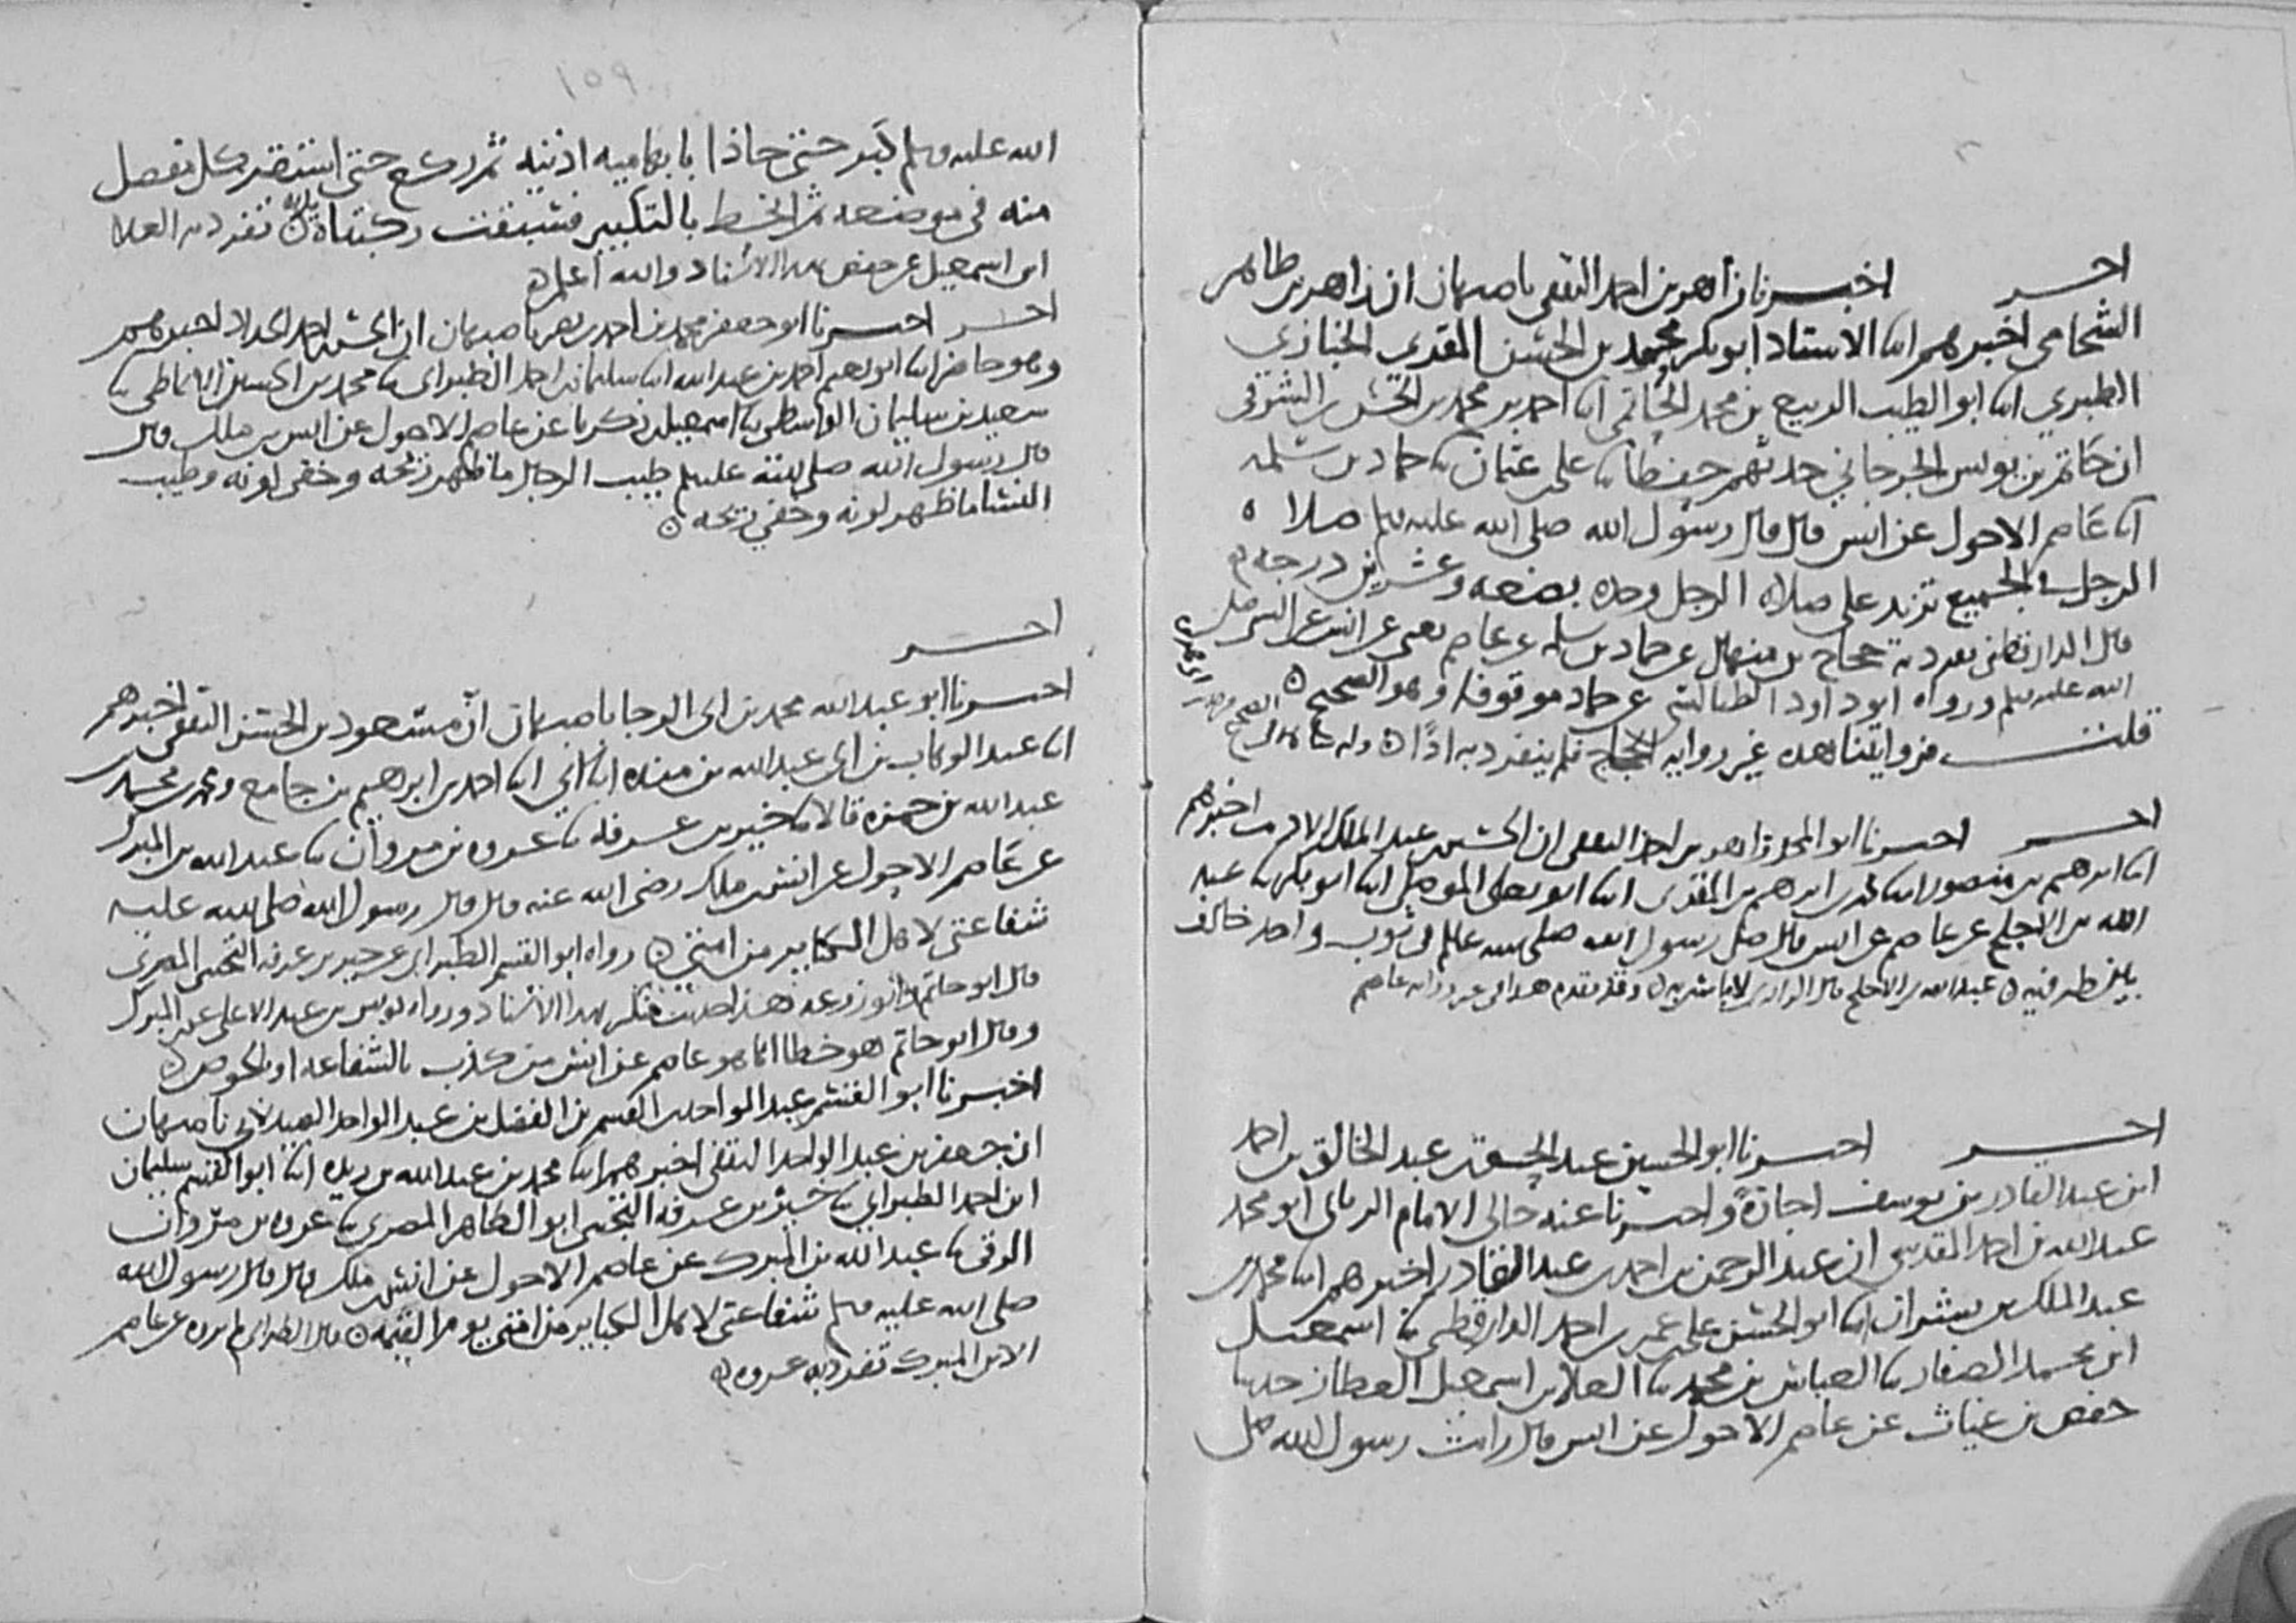 آخر اخبرنا زاهر بن احمد الثقفي باصبهان ان زاهر بن طاهر
الشحامي اخبرهم ابنا الاستاذ ابو بكر محمد بن الحسن المقري الخبازي
الطبري ابنا ابو الطيب الربيع بن محمد الحاتمي ابنا احمد بن محمد بن الحسن الشرقي
ان حاتم بن يونس الجرجاني حدثهم حفظا ثنا علي بن عثمان ثنا حماد بن سلمه
ابنا عاصم الاحول عن انس قال قال رسول الله صلى الله عليه وسلم صلاة
الرجل في الجميع تزيد على صلاة الرجل وحده بضعه وعشرين درجه
قال الدارقطني تفرد به حجاج بن منهال عن حماد بن سلمه عن عاصم يعني عن انس عن النبي صلى
الله عليه وسلم ورواه ابو داود الطيالسي عن حماد موقوفا وهو الصحيح
قلت فروايتنا هذه غير رواية الحجاج فلم ينفرد به اذا وله شاهد في الصحيح
آخر اخبرنا ابو المجد زاهر بن احمد الثقفي ان الحسين بن عبد الملك الاديب اخبرهم
ابنا ابرهيم بن منصور ابنا محمد بن ابرهيم بن المقري ابنا ابو يعلى الموصلي ابنا ابو بكر ثنا عبد
الله بن الاجلح عن عاصم عن انس قال صلى رسول الله صلى الله عليه وسلم في ثوب واحد خالف
بين طرفيه عبد الله بن الاجلح قال الرازي لا باس به وقد تقدم هذا في غير رواية عاصم
آخر اخبرنا ابو الحسين عبد الحق بن عبد الخالق بن احمد
ابن عبد القادر بن يوسف اجازة واخبرنا عنه خالي الامام الرباني ابو محمد
عبد الله بن احمد المقدسي ان عبد الرحمن بن احمد بن عبد القادر اخبرهم ابنا محمد بن
عبد الملك بن بشران ابنا ابو الحسن علي بن عمر بن احمد الدارقطني ثنا اسمعيل
ابن محمد الصفار ثنا العباس بن محمد ثنا العلاء بن اسمعيل العطار حدثنا
حفص بن غياث عن عاصم الاحول عن انس قال رايت رسول الله صلى
١٥٩
الله عليه وسلم كبر حتى حاذا بابهاميه اذنيه ثم ركع حتى استقر كل مفصل
منه في موضعه ثم انحط بالتكبير فسبقت ركبتاه يديه تفرد به العلاء
ابن اسمعيل عن حفص بهذا الاسناد والله اعلم
آخر اخبرنا ابو جعفر محمد بن احمد بن نصر باصبهان ان الحسن بن احمد الحداد اخبرهم
وهو حاضر ابنا ابو نعيم احمد بن عبد الله ابنا سليمان بن احمد الطبراني ثنا محمد بن الحسين الانماطي ثنا
سعيد بن سليمان الواسطي ثنا اسمعيل بن زكريا عن عاصم الاحول عن انس بن ملك قال
قال رسول الله صلى الله عليه وسلم طيب الرجال ما ظهر ريحه وخفي لونه وطيب
النسا ما ظهر لونه وخفي ريحه
آخر
اخبرنا ابو عبد الله محمد بن ابي الرجا باصبهان ان مسعود بن الحسن الثقفي اخبرهم
ابنا عبد الوهاب بن ابي عبد الله بن منده ابنا ابي ابنا احمد بن ابرهيم بن جامع ومحمد بن محمد بن
عبد الله بن حمزه قالا ثنا خير بن عرفه ثنا عروه بن مروان ثنا عبد الله بن المبرك
عن عاصم الاحول عن انس بن ملك رضى الله عنه قال قال رسول الله صلى الله عليه
شفاعتي لاهل الكباير من امتي رواه ابو القسم الطبراني عن خير بن عرفه التجيبي المصري
قال ابو حاتم وابو زرعه هذا حديث منكر بهذا الاسناد ورواه يونس بن عبد الاعلى عن ابن المبرك
وقال ابو حاتم هو خطا انما هو عاصم عن انس من كذب بالشفاعه او الحوض
اخبرنا ابو القسم عبد الواحد بن القسم بن الفضل بن عبد الواحد الصيدلاني باصبهان
ان جعفر بن عبد الواحد الثقفي اخبرهم ابنا محمد بن عبد الله بن ريذه ابنا ابو القسم سليمان
ابن احمد الطبراني ثنا خير بن عرفه التجيبي ابو الطاهر المصري ثنا عروه بن مروان
الرقي ثنا عبد الله بن المبرك عن عاصم الاحول عن انس بن ملك قال قال رسول الله
صلى الله عليه وسلم شفاعتي لاهل الكباير من امتي يوم القيمه قال الطبراني لم يروه عن عاصم
الا ابن المبرك تفرد به عروه